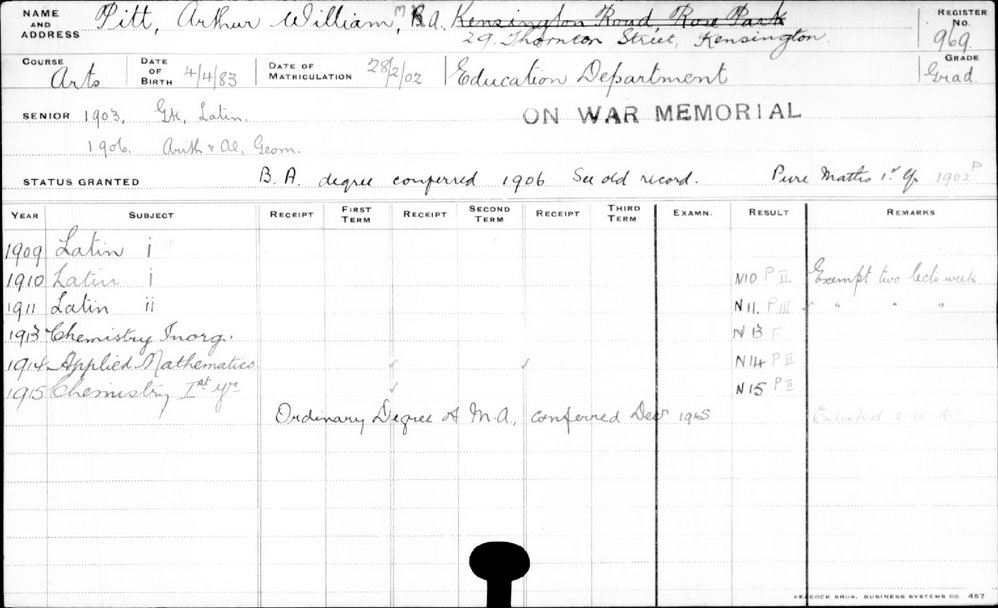 NAME AND ADDRESS Pitt, Arthur William, M.A. Kensington Road Rose Park
29 Thornton Street, Kensington.
REGISTER No. 969.
COURSE Arts DATE OF BIRTH 4/4/83 DATE OF MATRICULATION 28/2/02 Education Department GRADE Grad.
SENIOR 1903, Gk, Latin. ON WAR MEMORIAL
1906. Arith & Al, Geom.
STATUS GRANTED B.A. degree conferred 1906 See old record. Pure Maths 1st yr 1902 P
YEAR SUBJECT RECEIPT FIRST TERM RECEIPT SECOND TERM RECEIPT THIRD TERM EXAMN. RESULT REMARKS
1909 Latin i
1910 Latin i N10 P II Exempt two lects week
1911 Latin ii N11. P III " " "
1913 Chemistry Inorg. N13 F
1914 Applied Mathematics. N14 P II
1915 Chemistry Ist yr N15 P II
Ordinary Degree of M.A., conferred Dec 1915 Enlisted
PEACOCK BROS. BUSINESS SYSTEMS CO 457